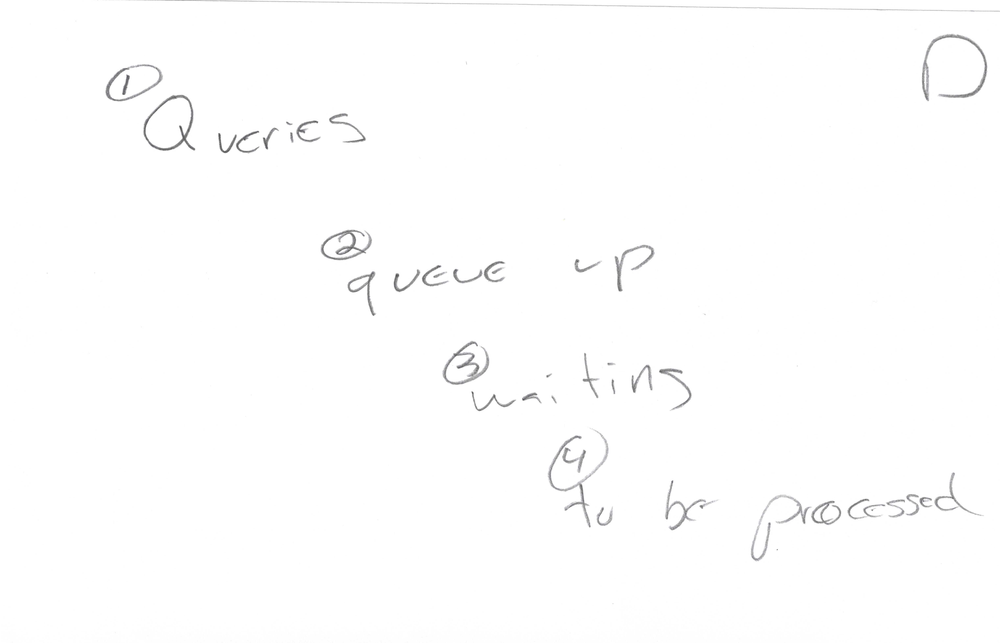 D
①
Queries
②
queue up
③
waiting
④
to be processed